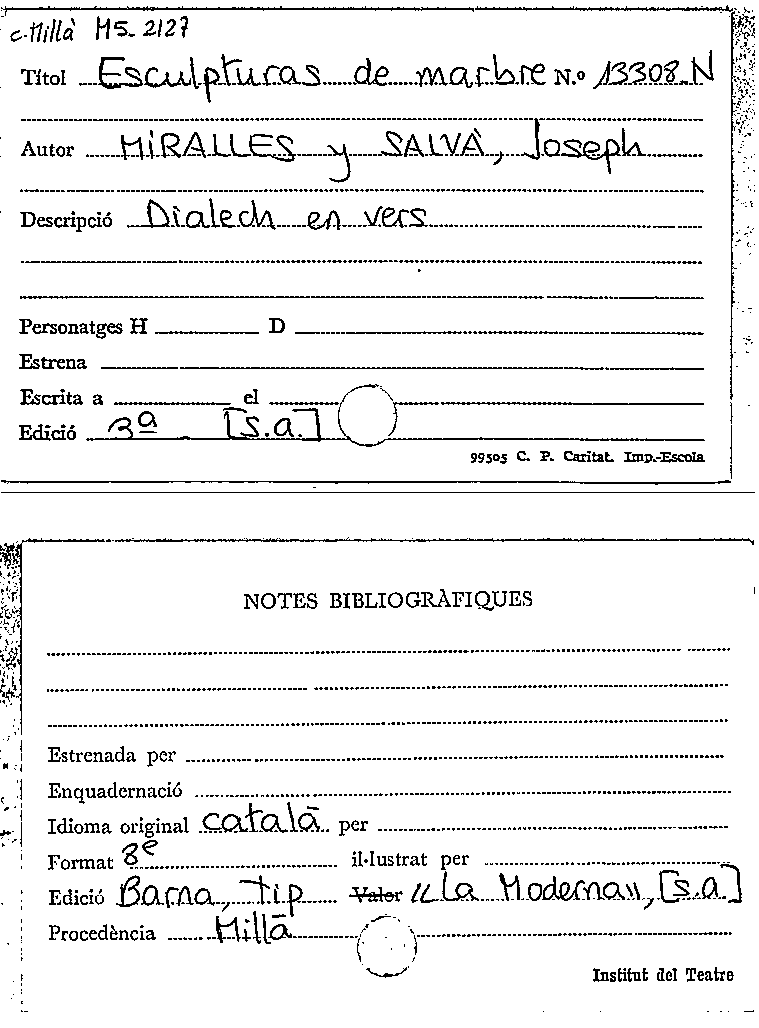 c. Millà MS. 2127
Títol Esculpturas de marbre N.º 13308-N
Autor MIRALLES y SALVÀ, Joseph
Descripció Dialech en vers
Personatges H D
Estrena
Escrita a el
Edició 3ª [s.a.]
99505 C. P. Caritat. Imp.-Escola
NOTES BIBLIOGRÀFIQUES
Estrenada per
Enquadernació
Idioma original català per
Format 8è il·lustrat per
Edició Barna, tip Valor "La Moderna", [s.a.]
Procedència Millà
Institut del Teatre